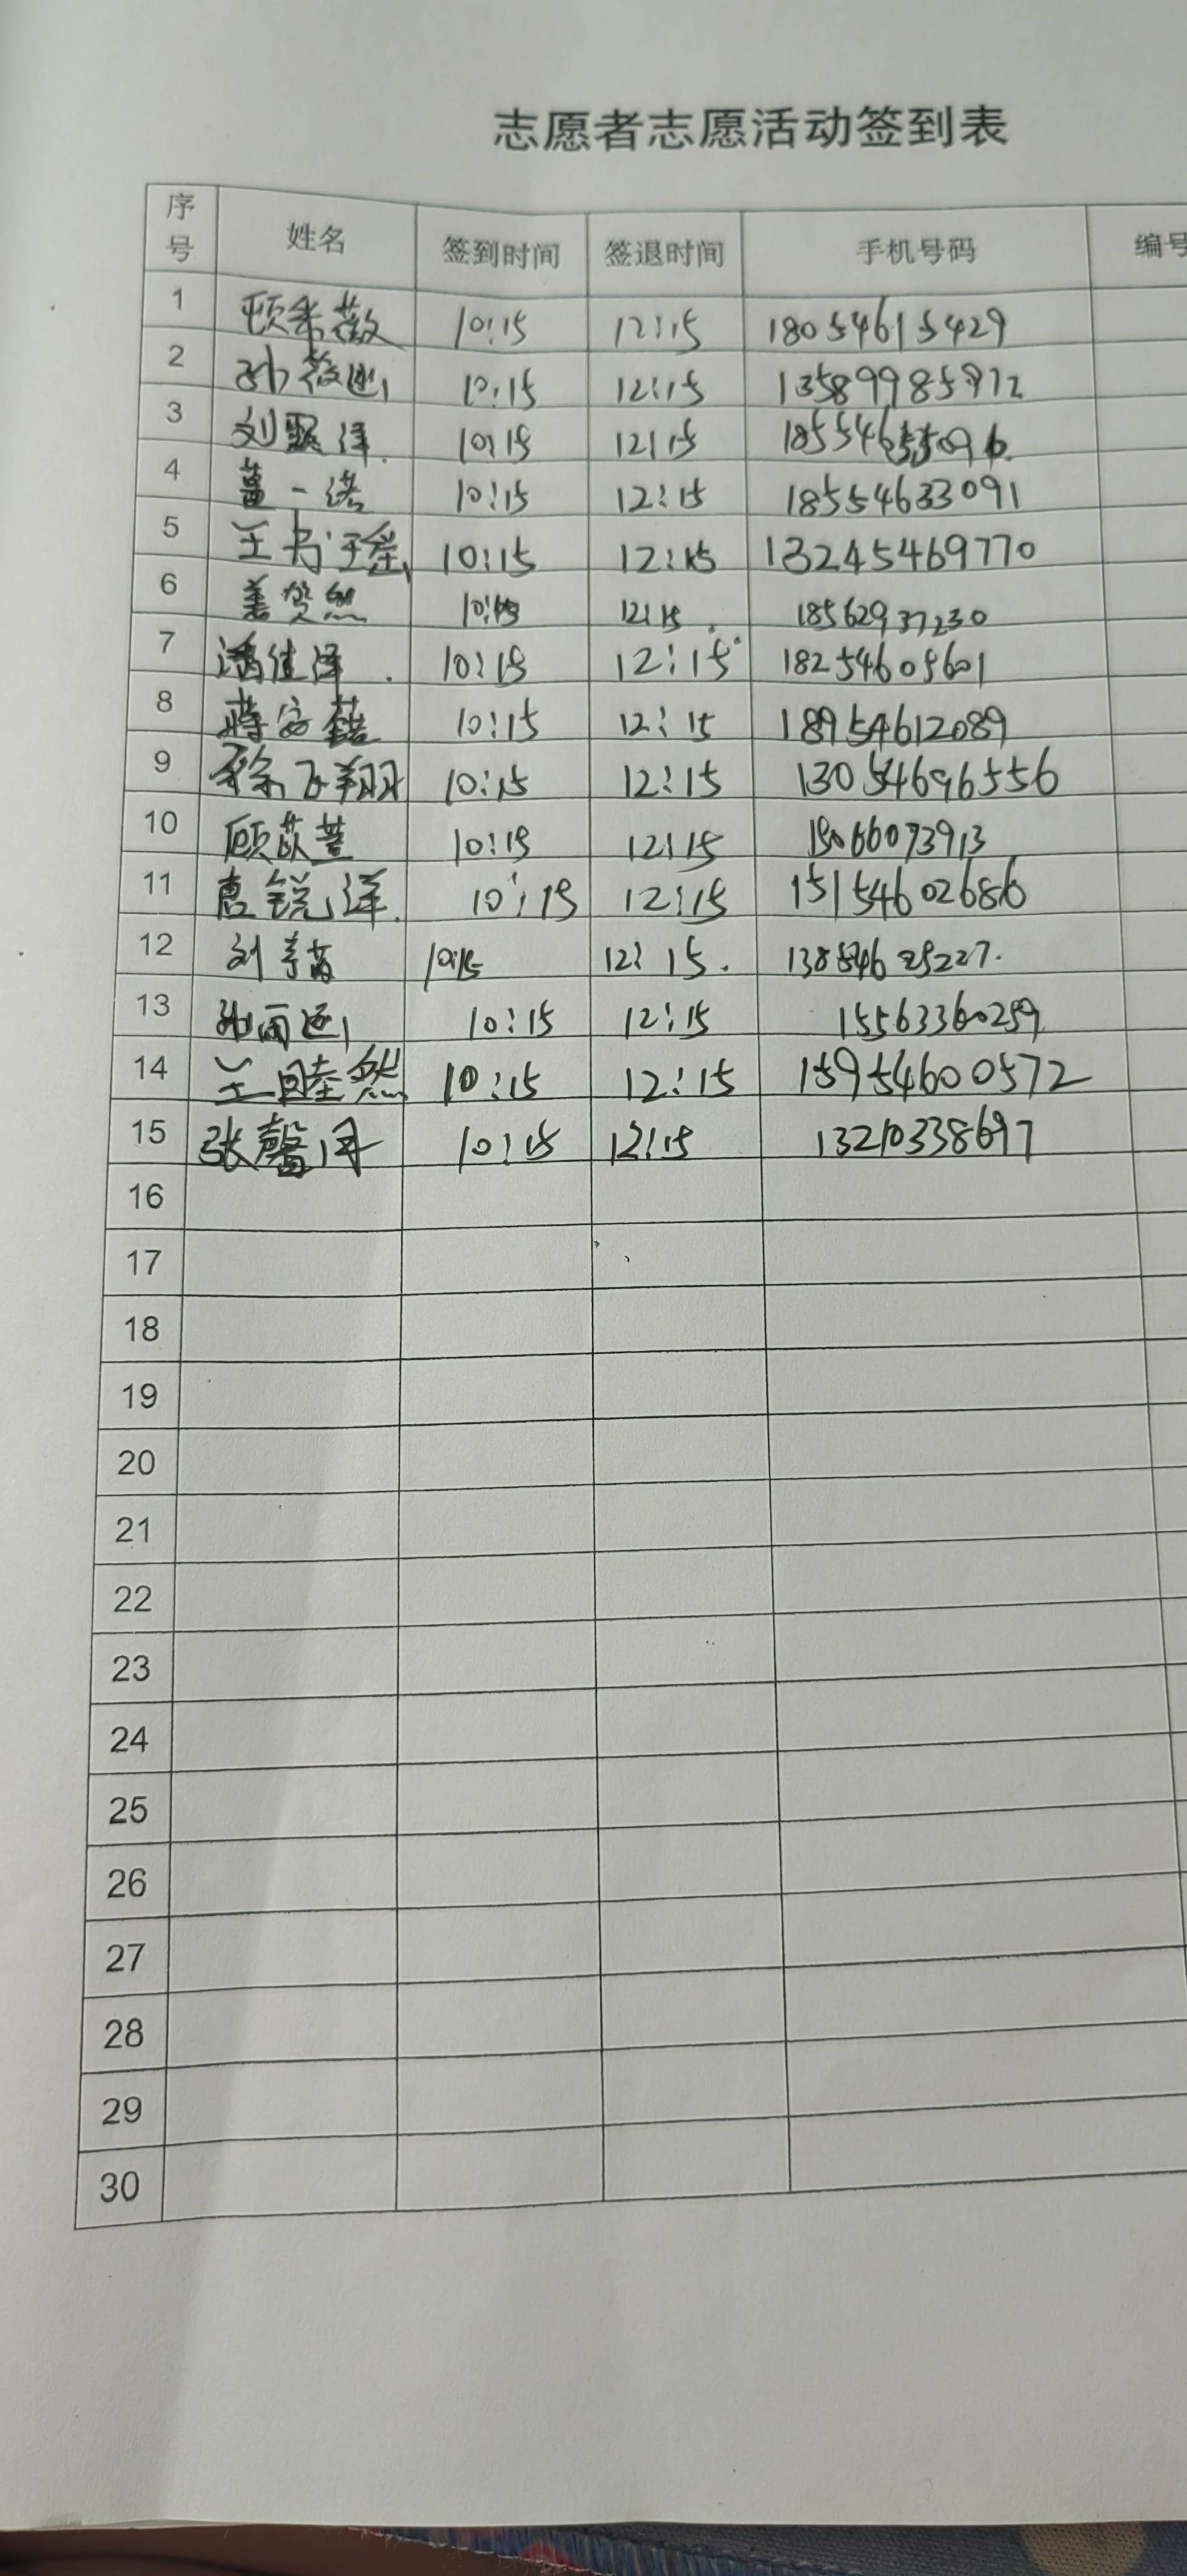 志愿者志愿活动签到表
序号 姓名 签到时间 签退时间 手机号码 编号
1 10:15 12:15 18054615429
2 10:15 12:15 13589985972
3 刘 泽 10:15 12:15
4 一诺 10:15 12:15 18554633091
5 王 10:15 12:15 13245469770
6 姜贤然 10:15 12:15 18562937230
7 佳泽 10:15 12:15 18254605601
8 蒋安 10:15 12:15 18954612089
9 徐飞翔 10:15 12:15 13054696556
10 顾苡萱 10:15 12:15 15066073913
11 锐洋 10:15 12:15 15154602686
12 刘 10:15 12:15
13 10:15 12:15 15563360259
14 王睦然 10:15 12:15 15954600572
15 张馨月 10:15 12:15 13210338697
16
17
18
19
20
21
22
23
24
25
26
27
28
29
30